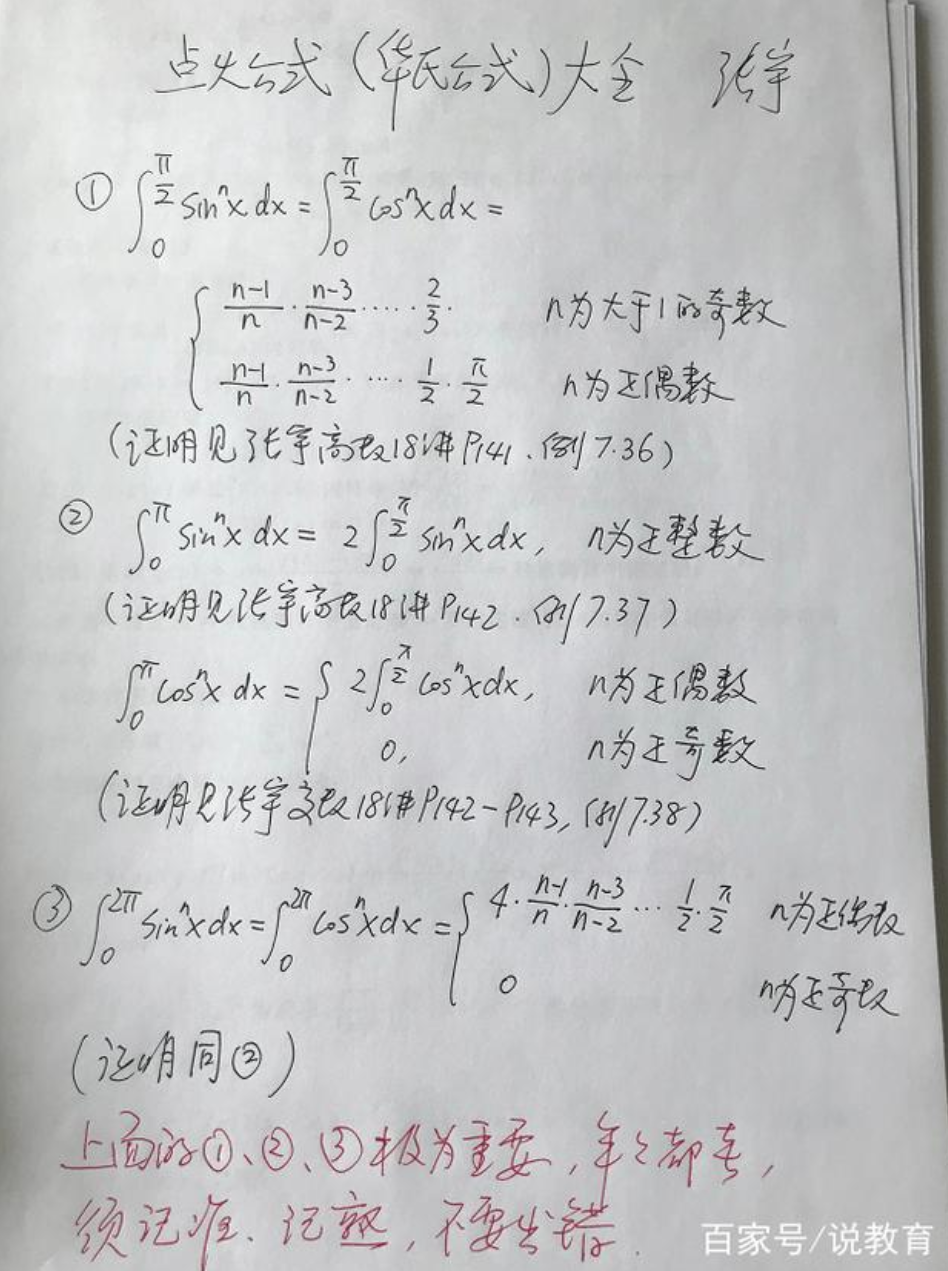 点火公式(华氏公式)大全 张宇
① ∫₀^{π/2} sinⁿx dx = ∫₀^{π/2} cosⁿx dx =
{ (n-1)/n · (n-3)/(n-2) · ⋯ · 2/3 · n为大于1的奇数
(n-1)/n · (n-3)/(n-2) · ⋯ · 1/2 · π/2 n为正偶数
(证明见张宇高数18讲P141、例7.36)
② ∫₀^π sinⁿx dx = 2∫₀^{π/2} sinⁿx dx, n为正整数
(证明见张宇高数18讲P142、例7.37)
∫₀^π cosⁿx dx = { 2∫₀^{π/2} cosⁿx dx, n为正偶数
0, n为正奇数
(证明见张宇高数18讲P142-P143,例7.38)
③ ∫₀^{2π} sinⁿx dx = ∫₀^{2π} cosⁿx dx = { 4 · (n-1)/n · (n-3)/(n-2) ⋯ 1/2 · π/2 n为正偶数
0 n为正奇数
(证明同②)
上面的①、②、③极为重要,年々都考,
须记准、记熟,不要出错.
百家号/说教育